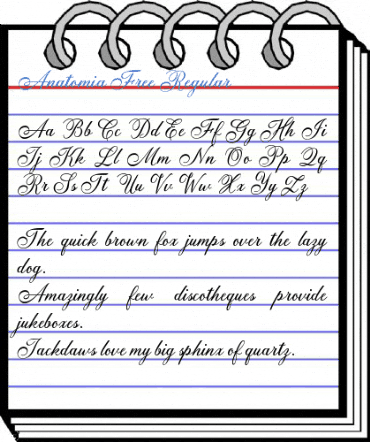 Anatomia Free Regular
Aa Bb Cc Dd Ee Ff Gg Hh Ii
Jj Kk Ll Mm Nn Oo Pp Qq
Rr Ss Tt Uu Vv Ww Xx Yy Zz
The quick brown fox jumps over the lazy
dog.
Amazingly few discotheques provide
jukeboxes.
Jackdaws love my big sphinx of quartz.